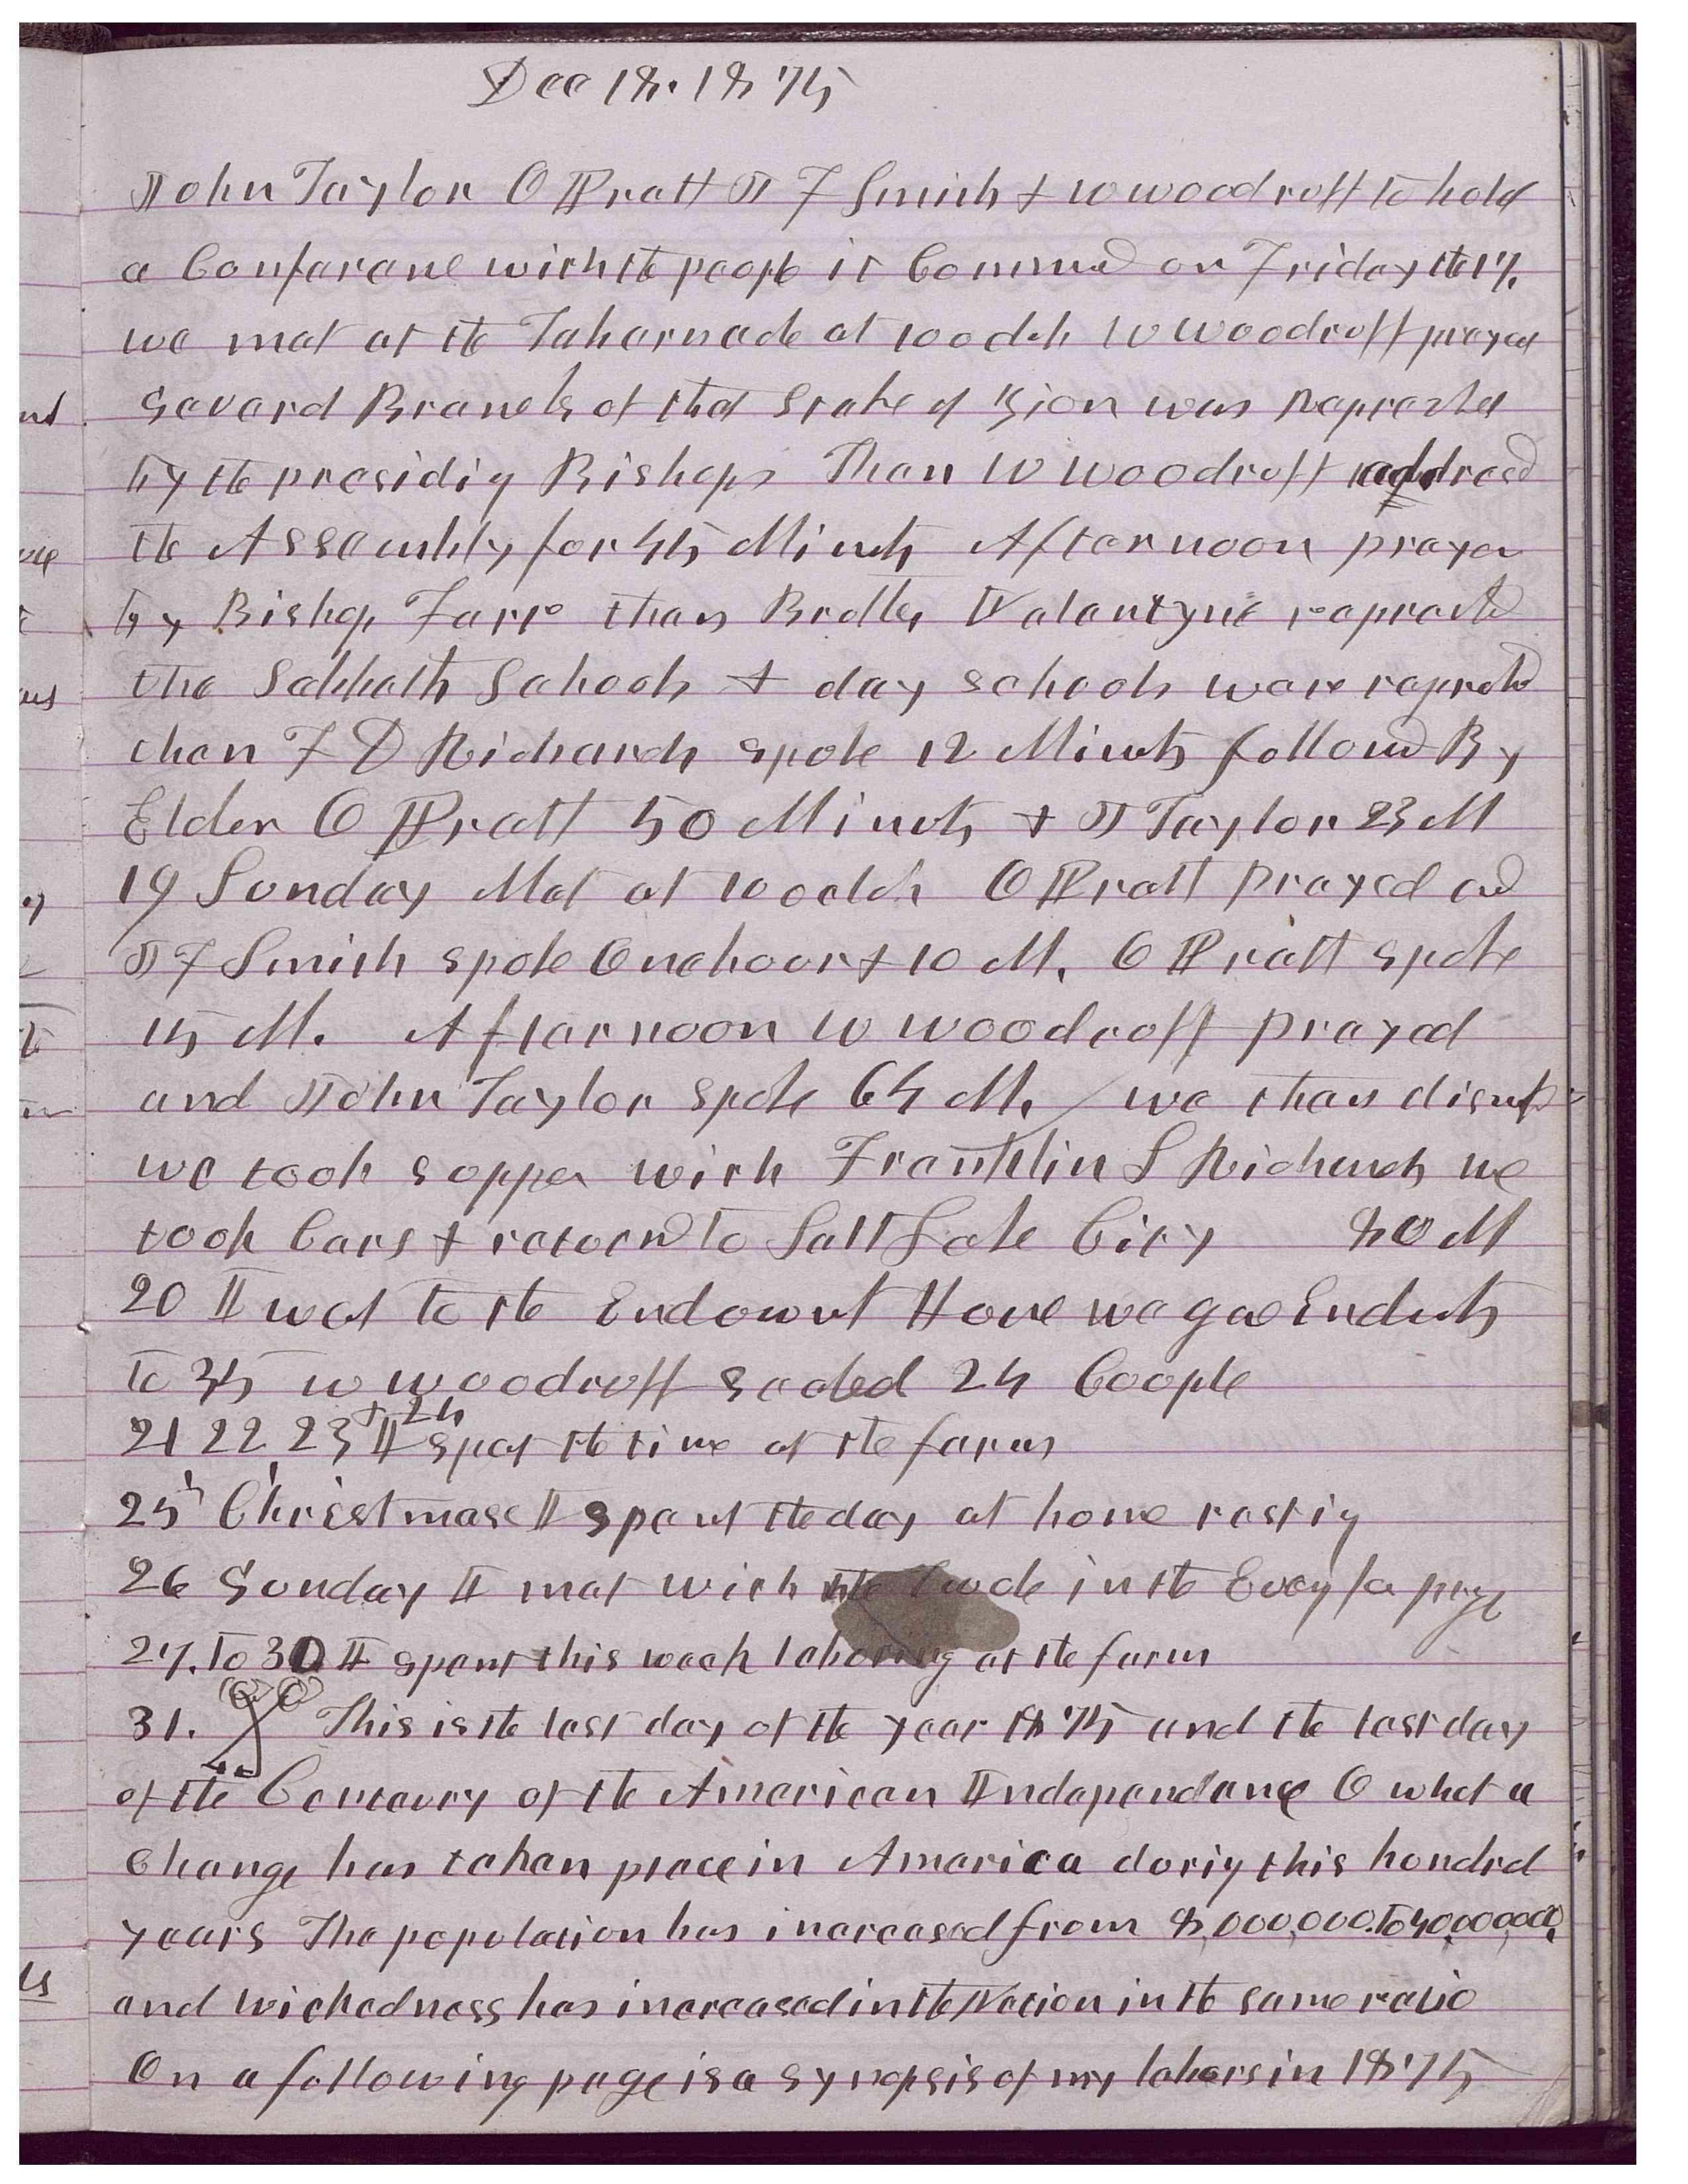 Dec 18. 1875
John Taylor O Pratt J F Smith & W Woodruff to hold
a Conferene with the people it Commed on Friday the 17.
we met at the Tabernacle at 10 oclk W Woodruff prayed
Severl Branchs of that Stake of Zion was Represted
by the presidig Bishops Then W Woodruff addresed
the Assembly for 45 Minuts Afternoon prayer
by Bishop Farr then Brother Valantyne represtd
the Sabbath Schools & day schools ware represtd
then F D Richards spoke 12 Minuts followed By
Elder O Pratt 50 Minuts & J Taylor 23 M
19 Sunday Met at 10 oclok O Pratt Prayed and
J F Smith spoke One hour & 10 M. O Pratt spoke
15 M. Afternoon W Woodruff prayed
and John Taylor spoke 64 M. we then
we took supper with Franklin S Richards we
took Cars & returnd to Salt Lake City 80 M
20 I wet to the Endowmt House we gave Endmts
to 35 W Woodruff sealed 24 Couple
21 22, 23, & 24 I spet the time at the farm
25th Christmase I spent the day at home restig
26 Sunday I met with the in the Eveng for prayer
27. to 30 I spent this week laboring at the farm
31. This is the last day of the year 1875 and the last day
of the Centaury of the American Independance O what a
Change has taken place in America durig this hundrd
years The population has increased from 3,000,000. to 40,000000,
and wickedness has increased in the Nation in the same ratio
On a following page is a synopsis of my labors in 1875